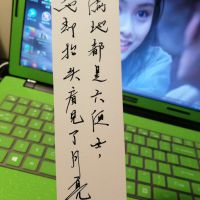 满地都是六便士，
他却抬头看见了月亮